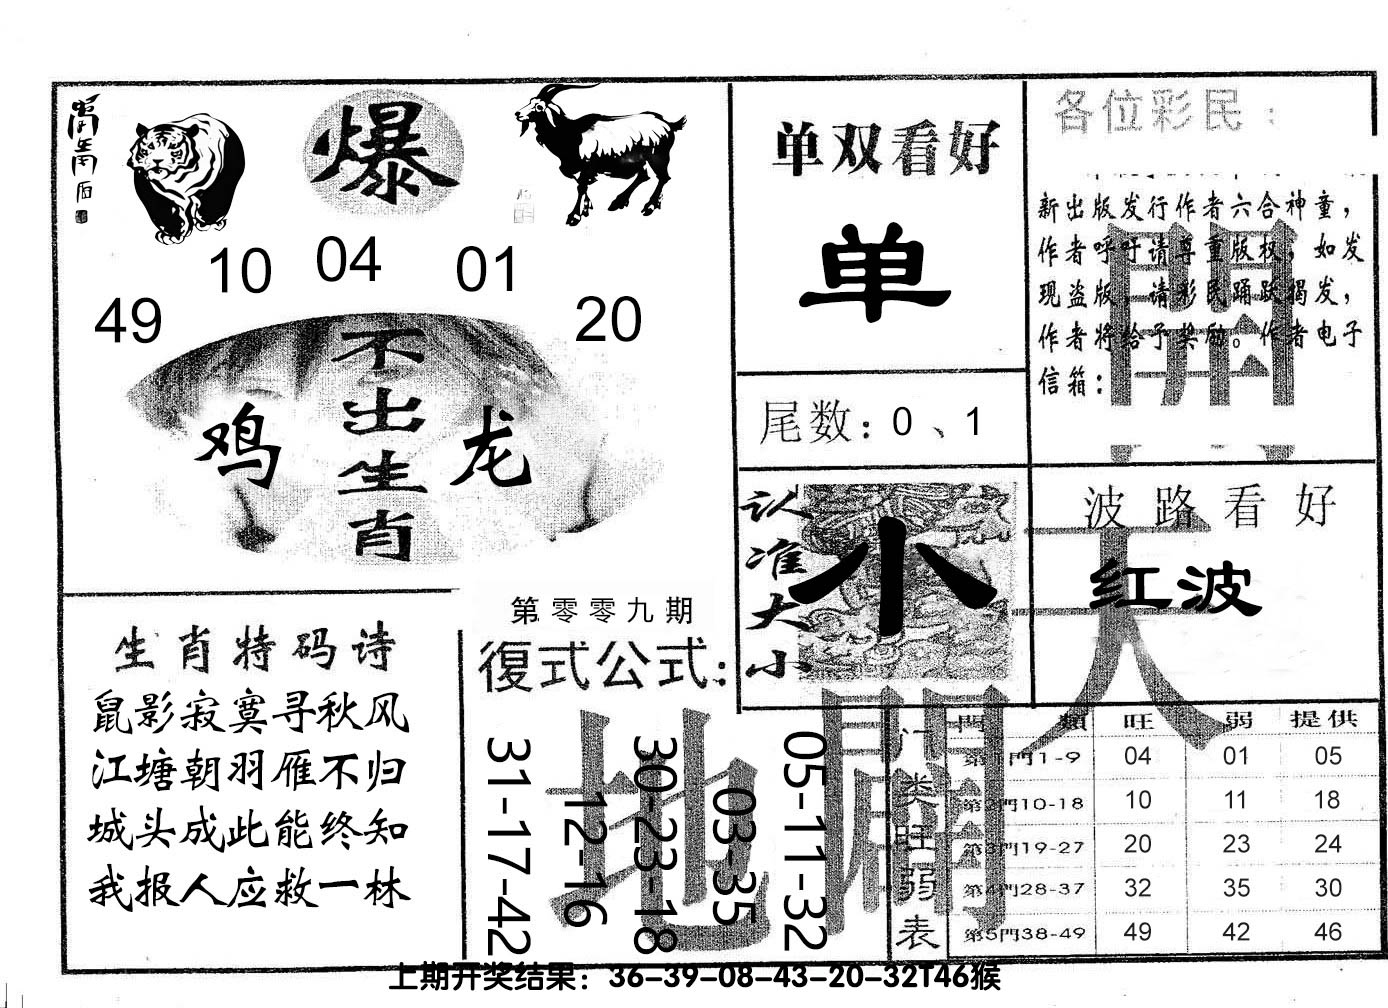 爆
10 04 01
49 20
不出生肖
鸡 龙
单双看好
单
尾数：0、1
各位彩民：
新出版发行作者六合神童，
作者呼吁请尊重版权，如发
现盗版，请彩民踊跃揭发，
作者将给予奖励。作者电子
信箱：
開
认准大小
小
波路看好
红波
天
生肖特码诗
鼠影寂寞寻秋风
江塘朝羽雁不归
城头成此能终知
我报人应救一林
第零零九期
復式公式：
31-17-42
12-16
30-23-18
03-35
05-11-32
地
開
门类旺弱表
門類 旺 弱 提供
第1門1-9 04 01 05
第2門10-18 10 11 18
第3門19-27 20 23 24
第4門28-37 32 35 30
第5門38-49 49 42 46
上期开奖结果：36-39-08-43-20-32T46猴